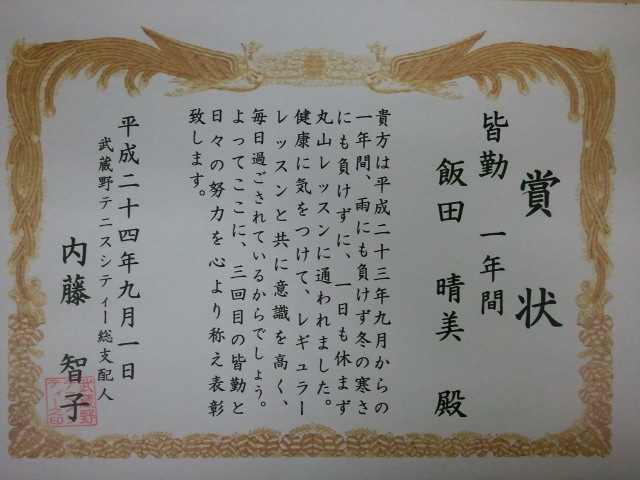 賞状
皆勤 一年間
飯田 晴美 殿
貴方は平成二十三年九月からの
一年間、雨にも負けず冬の寒さ
にも負けずに、一日も休まず
丸山レッスンに通われました。
健康に気をつけて、レギュラー
レッスンと共に意識を高く、
毎日過ごされているからでしょう。
よってここに、三回目の皆勤と
日々の努力を心より称え表彰
致します。
平成二十四年九月一日
武蔵野テニスシティー総支配人
内藤 智子
武蔵野
テニスシ
ティー印